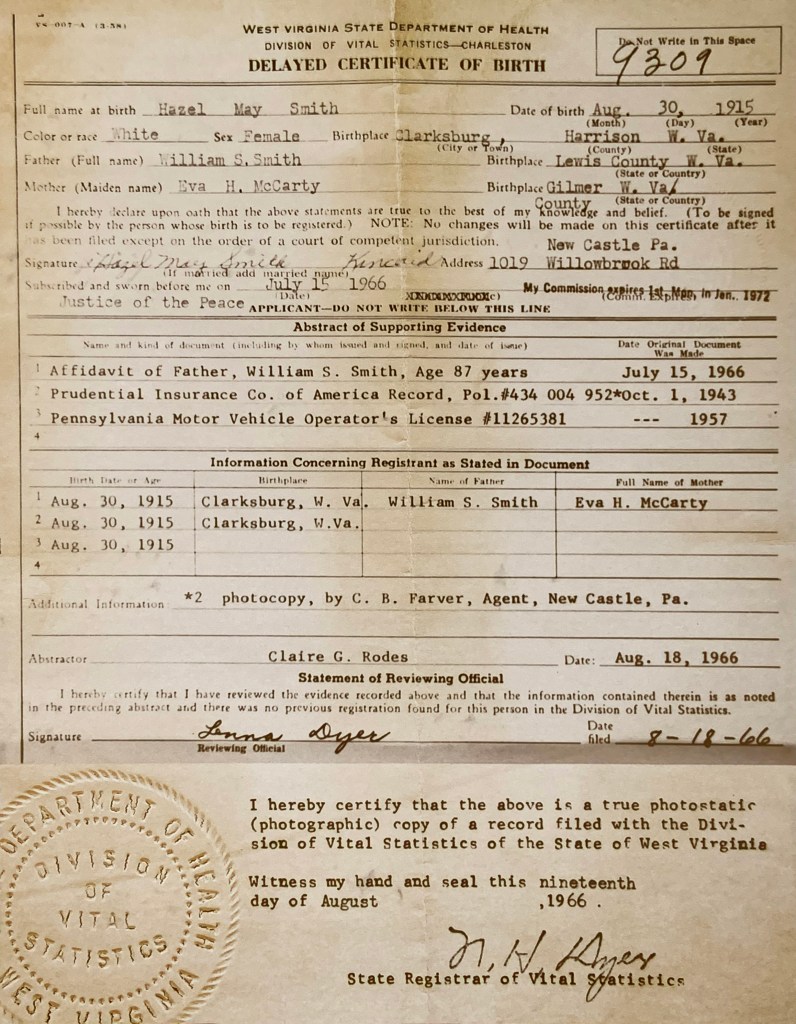 VS-007-A (3-58)
WEST VIRGINIA STATE DEPARTMENT OF HEALTH
DIVISION OF VITAL STATISTICS—CHARLESTON
DELAYED CERTIFICATE OF BIRTH
Do Not Write in This Space
9309
Full name at birth Hazel May Smith Date of birth Aug. 30, 1915
(Month) (Day) (Year)
Color or race White Sex Female Birthplace Clarksburg, Harrison W. Va.
(City or Town) (County) (State)
Father (Full name) William S. Smith Birthplace Lewis County W. Va.
(State or Country)
Mother (Maiden name) Eva H. McCarty Birthplace Gilmer W. Va/
County (State or Country)
I hereby declare upon oath that the above statements are true to the best of my knowledge and belief. (To be signed
if possible by the person whose birth is to be registered.) NOTE: No changes will be made on this certificate after it
has been filed except on the order of a court of competent jurisdiction.
New Castle Pa.
Signature Hazel May Smith Kincaid Address 1019 Willowbrook Rd
(If married add married name)
Subscribed and sworn before me on July 15 1966 My Commission expires 1st Mon. in Jan. 1972
(Date) (Comm. Expires)
Justice of the Peace APPLICANT—DO NOT WRITE BELOW THIS LINE
Abstract of Supporting Evidence
Name and kind of document (including by whom issued and signed, and date of issue) Date Original Document
Was Made
1 Affidavit of Father, William S. Smith, Age 87 years July 15, 1966
2 Prudential Insurance Co. of America Record, Pol.#434 004 952*Oct. 1, 1943
3 Pennsylvania Motor Vehicle Operator's License #11265381 --- 1957
4
Information Concerning Registrant as Stated in Document
Birth Date or Age Birthplace Name of Father Full Name of Mother
1 Aug. 30, 1915 Clarksburg, W. Va. William S. Smith Eva H. McCarty
2 Aug. 30, 1915 Clarksburg, W.Va.
3 Aug. 30, 1915
4
Additional Information *2 photocopy, by C. B. Farver, Agent, New Castle, Pa.
Abstractor Claire G. Rodes Date: Aug. 18, 1966
Statement of Reviewing Official
I hereby certify that I have reviewed the evidence recorded above and that the information contained therein is as noted
in the preceding abstract and there was no previous registration found for this person in the Division of Vital Statistics.
Signature Lenna Dyer Date
Reviewing Official filed 8-18-66
I hereby certify that the above is a true photostatic
(photographic) copy of a record filed with the Divi-
sion of Vital Statistics of the State of West Virginia
Witness my hand and seal this nineteenth
day of August ,1966 .
N. H. Dyer
State Registrar of Vital Statistics
DEPARTMENT OF HEALTH
DIVISION
OF
VITAL
STATISTICS
WEST VIRGINIA